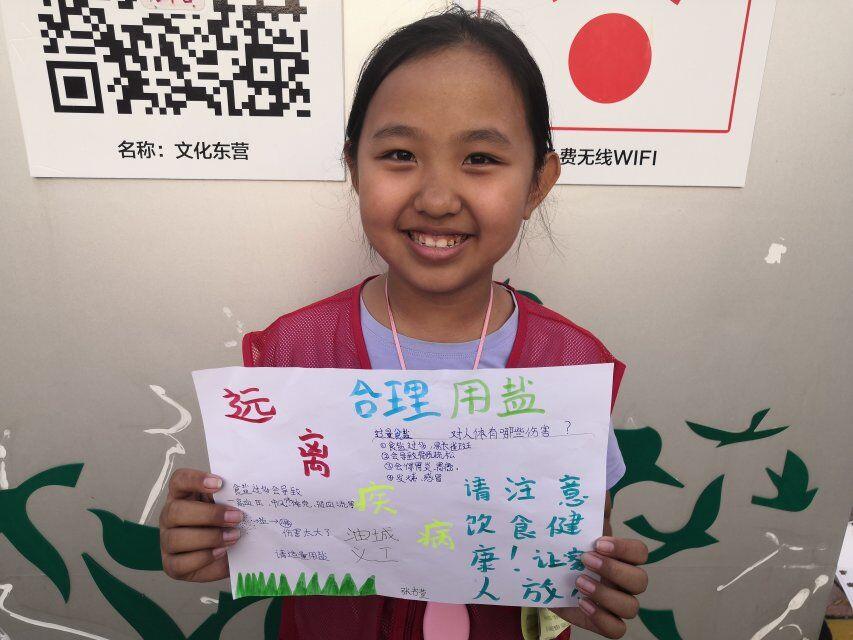 名称：文化东营
费无线WIFI
远离疾病
合理用盐
过量食盐 对人体有哪些伤害？
①食盐过多，易长雀斑
②会导致骨质疏松
③会得胃炎、胃癌
④发烧，感冒
食盐过多会导致
高血压
伤害太大了
请适量用盐
油城
义工
请注意
饮食健
康！让家
人放